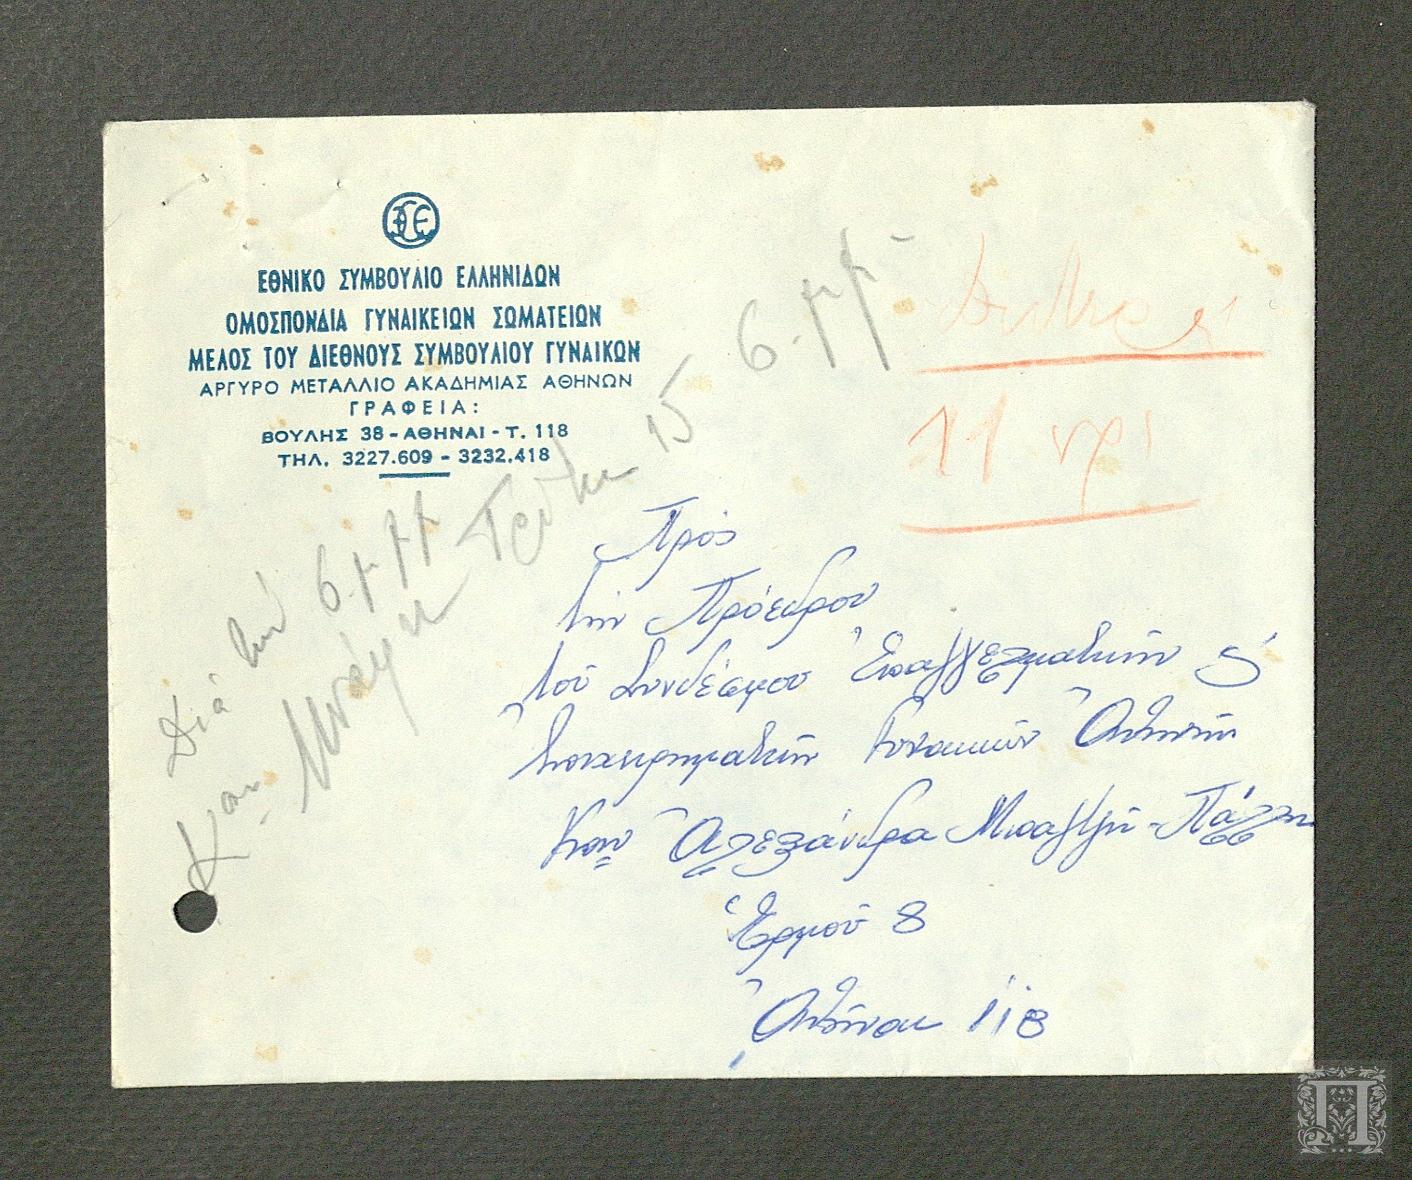 ΕΘΝΙΚΟ ΣΥΜΒΟΥΛΙΟ ΕΛΛΗΝΙΔΩΝ
ΟΜΟΣΠΟΝΔΙΑ ΓΥΝΑΙΚΕΙΩΝ ΣΩΜΑΤΕΙΩΝ
ΜΕΛΟΣ ΤΟΥ ΔΙΕΘΝΟΥΣ ΣΥΜΒΟΥΛΙΟΥ ΓΥΝΑΙΚΩΝ
ΑΡΓΥΡΟ ΜΕΤΑΛΛΙΟ ΑΚΑΔΗΜΙΑΣ ΑΘΗΝΩΝ
ΓΡΑΦΕΙΑ:
ΒΟΥΛΗΣ 38 - ΑΘΗΝΑΙ - Τ. 118
ΤΗΛ. 3227.609 - 3232.418
6.μμ
11 πρ
Διά την 6.μ.μμ
Καν 15
Πρός
τήν Πρόεδρον
τοῦ Συνδέσμου Ἐπαγγελματιῶν &
Ἐπιχειρηματιῶν Γυναικῶν Ἀθηνῶν
Καν Ἀλεξάνδρα Μπαλτζῆ-Πάλλη
Ἑρμοῦ 8
Ἀθήναι 118